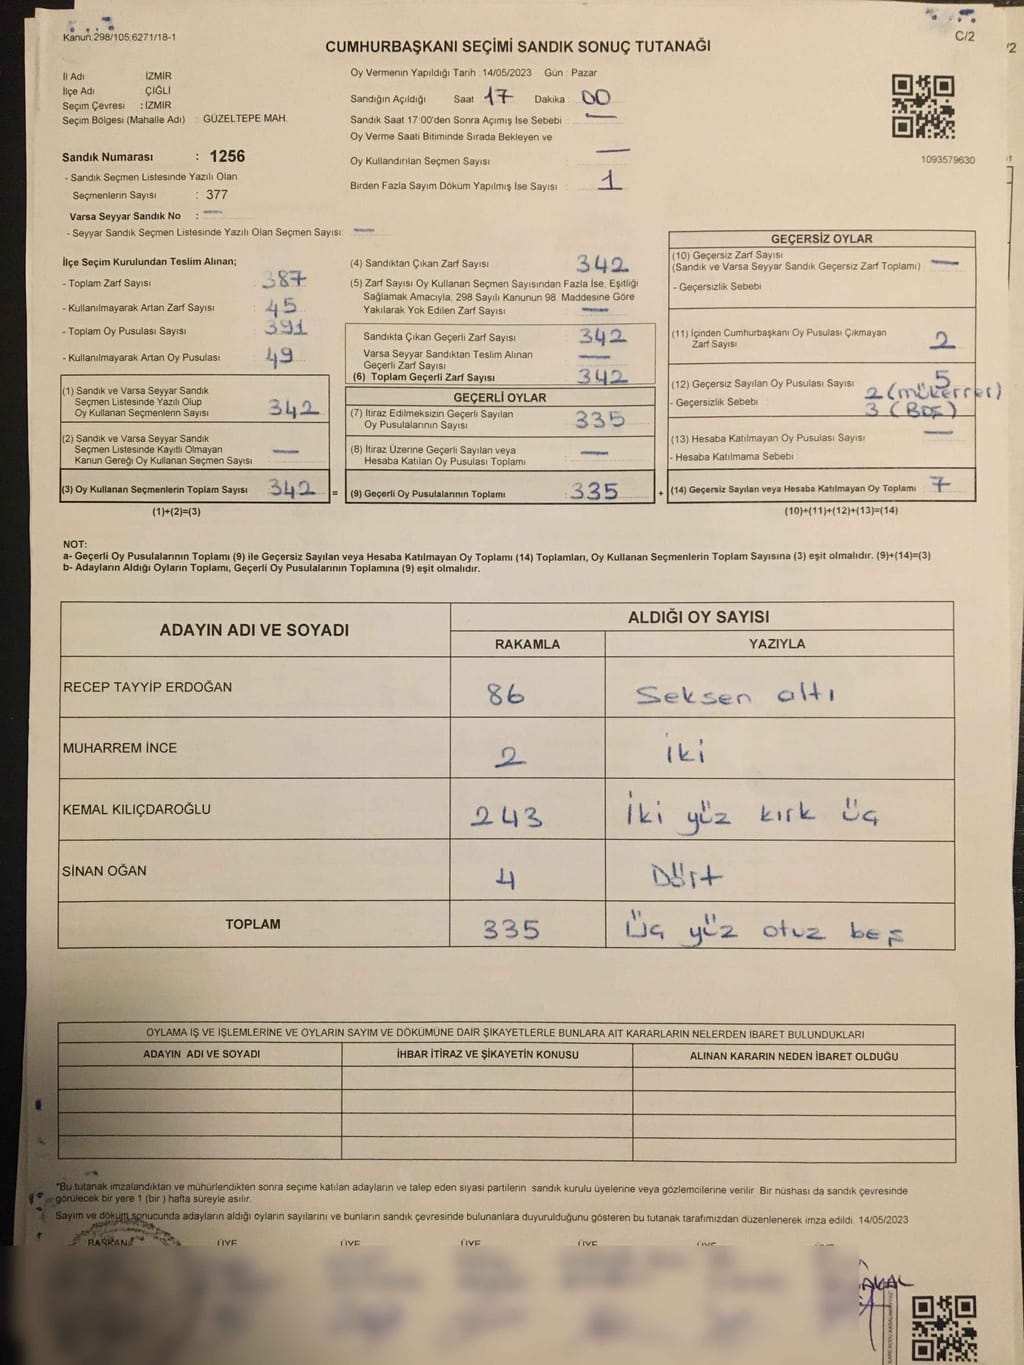 Kanun.298/105,6271/18-1
C/2
CUMHURBAŞKANI SEÇİMİ SANDIK SONUÇ TUTANAĞI
İl Adı İZMİR
İlçe Adı ÇİĞLİ
Seçim Çevresi : İZMİR
Seçim Bölgesi (Mahalle Adı) : GÜZELTEPE MAH.
Sandık Numarası : 1256
- Sandık Seçmen Listesinde Yazılı Olan
Seçmenlerin Sayısı : 377
Varsa Seyyar Sandık No : —
- Seyyar Sandık Seçmen Listesinde Yazılı Olan Seçmen Sayısı: —
Oy Vermenin Yapıldığı Tarih : 14/05/2023 Gün : Pazar
Sandığın Açıldığı Saat : 17 Dakika : 00
Sandık Saat 17:00'den Sonra Açımış İse Sebebi : —
Oy Verme Saati Bitiminde Sırada Bekleyen ve
Oy Kullandırılan Seçmen Sayısı : —
Birden Fazla Sayım Döküm Yapılmış İse Sayısı : 1
1093579630
İlçe Seçim Kurulundan Teslim Alınan;
- Toplam Zarf Sayısı : 387
- Kullanılmayarak Artan Zarf Sayısı : 45
- Toplam Oy Pusulası Sayısı : 391
- Kullanılmayarak Artan Oy Pusulası : 49
(1) Sandık ve Varsa Seyyar Sandık
Seçmen Listesinde Yazılı Olup
Oy Kullanan Seçmenlerin Sayısı : 342
(2) Sandık ve Varsa Seyyar Sandık
Seçmen Listesinde Kayıtlı Olmayan
Kanun Gereği Oy Kullanan Seçmen Sayısı : —
(3) Oy Kullanan Seçmenlerin Toplam Sayısı : 342 =
(1)+(2)=(3)
(4) Sandıktan Çıkan Zarf Sayısı : 342
(5) Zarf Sayısı Oy Kullanan Seçmen Sayısından Fazla İse, Eşitliği
Sağlamak Amacıyla, 298 Sayılı Kanunun 98. Maddesine Göre
Yakılarak Yok Edilen Zarf Sayısı : —
Sandıkta Çıkan Geçerli Zarf Sayısı : 342
Varsa Seyyar Sandıktan Teslim Alınan
Geçerli Zarf Sayısı : —
(6) Toplam Geçerli Zarf Sayısı : 342
GEÇERLİ OYLAR
(7) İtiraz Edilmeksizin Geçerli Sayılan
Oy Pusulalarının Sayısı : 335
(8) İtiraz Üzerine Geçerli Sayılan veya
Hesaba Katılan Oy Pusulası Toplamı : —
(9) Geçerli Oy Pusulalarının Toplamı : 335 +
GEÇERSİZ OYLAR
(10) Geçersiz Zarf Sayısı : —
(Sandık ve Varsa Seyyar Sandık Geçersiz Zarf Toplamı)
- Geçersizlik Sebebi
(11) İçinden Cumhurbaşkanı Oy Pusulası Çıkmayan
Zarf Sayısı : 2
(12) Geçersiz Sayılan Oy Pusulası Sayısı : 5
- Geçersizlik Sebebi : 2 (mükerrer)
3 (BOŞ)
(13) Hesaba Katılmayan Oy Pusulası Sayısı : —
- Hesaba Katılmama Sebebi
(14) Geçersiz Sayılan veya Hesaba Katılmayan Oy Toplamı : 7
(10)+(11)+(12)+(13)=(14)
NOT:
a- Geçerli Oy Pusulalarının Toplamı (9) ile Geçersiz Sayılan veya Hesaba Katılmayan Oy Toplamı (14) Toplamları, Oy Kullanan Seçmenlerin Toplam Sayısına (3) eşit olmalıdır. (9)+(14)=(3)
b- Adayların Aldığı Oyların Toplamı, Geçerli Oy Pusulalarının Toplamına (9) eşit olmalıdır.
ADAYIN ADI VE SOYADI
ALDIĞI OY SAYISI
RAKAMLA YAZIYLA
RECEP TAYYİP ERDOĞAN 86 Seksen altı
MUHARREM İNCE 2 İki
KEMAL KILIÇDAROĞLU 243 İki yüz kırk üç
SİNAN OĞAN 4 Dört
TOPLAM 335 Üç yüz otuz beş
OYLAMA İŞ VE İŞLEMLERİNE VE OYLARIN SAYIM VE DÖKÜMÜNE DAİR ŞİKAYETLERLE BUNLARA AİT KARARLARIN NELERDEN İBARET BULUNDUKLARI
ADAYIN ADI VE SOYADI İHBAR İTİRAZ VE ŞİKAYETİN KONUSU ALINAN KARARIN NEDEN İBARET OLDUĞU
*Bu tutanak imzalandıktan ve mühürlendikten sonra seçime katılan adayların ve talep eden siyasi partilerin sandık kurulu üyelerine veya gözlemcilerine verilir. Bir nüshası da sandık çevresinde
görülecek bir yere 1 (bir) hafta süreyle asılır.
Sayım ve döküm sonucunda adayların aldığı oyların sayılarını ve bunların sandık çevresinde bulunanlara duyurulduğunu gösteren bu tutanak tarafımızdan düzenlenerek imza edildi. 14/05/2023
BAŞKAN ÜYE ÜYE ÜYE ÜYE ÜYE